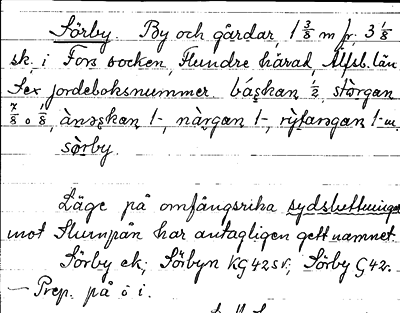 Sörby. By och gårdar, 1 3/8 m fr, 3 1/8
sk, i Fors socken, Flundre härad, Älfsb. län
Sex jordeboksnummer. báskan 1/2, stòrgan
7/8 o 1/8, ànəskan 1-, nàrgan 1-, 1- u.
sòrby.
Läge på omfångsrika sydsluttningar
mot Slumpån har antagligen gett namnet.
Sörby ek; Sörbyn KG42SV; Sörby G42.
— Prep. på o i.